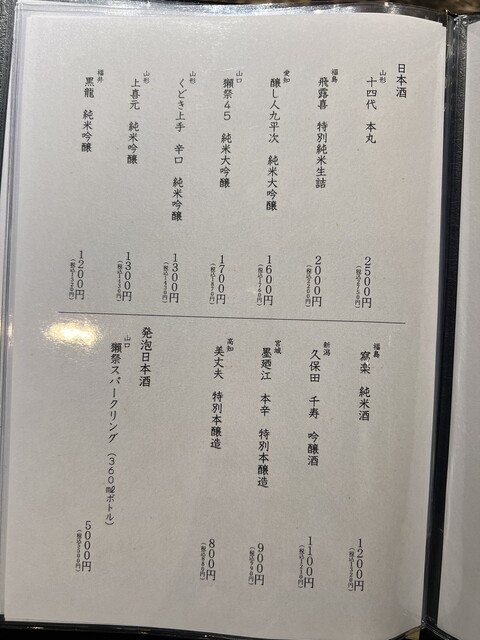 日本酒
山形
十四代 本丸
2500円
(税込2750円)
福島
飛露喜 特別純米生詰
2000円
(税込2200円)
愛知
醸し人九平次 純米大吟醸
1600円
(税込1760円)
山口
獺祭45 純米大吟醸
1700円
(税込1870円)
山形
くどき上手 辛口 純米吟醸
1300円
(税込1430円)
山形
上喜元 純米吟醸
1300円
(税込1430円)
福井
黒龍 純米吟醸
1200円
(税込1320円)
福島
寫楽 純米酒
1200円
(税込1320円)
新潟
久保田 千寿 吟醸酒
1100円
(税込1210円)
宮城
墨廼江 本辛 特別本醸造
900円
(税込990円)
高知
美丈夫 特別本醸造
800円
(税込880円)
発泡日本酒
山口
獺祭スパークリング(360㎖ボトル)
5000円
(税込5500円)